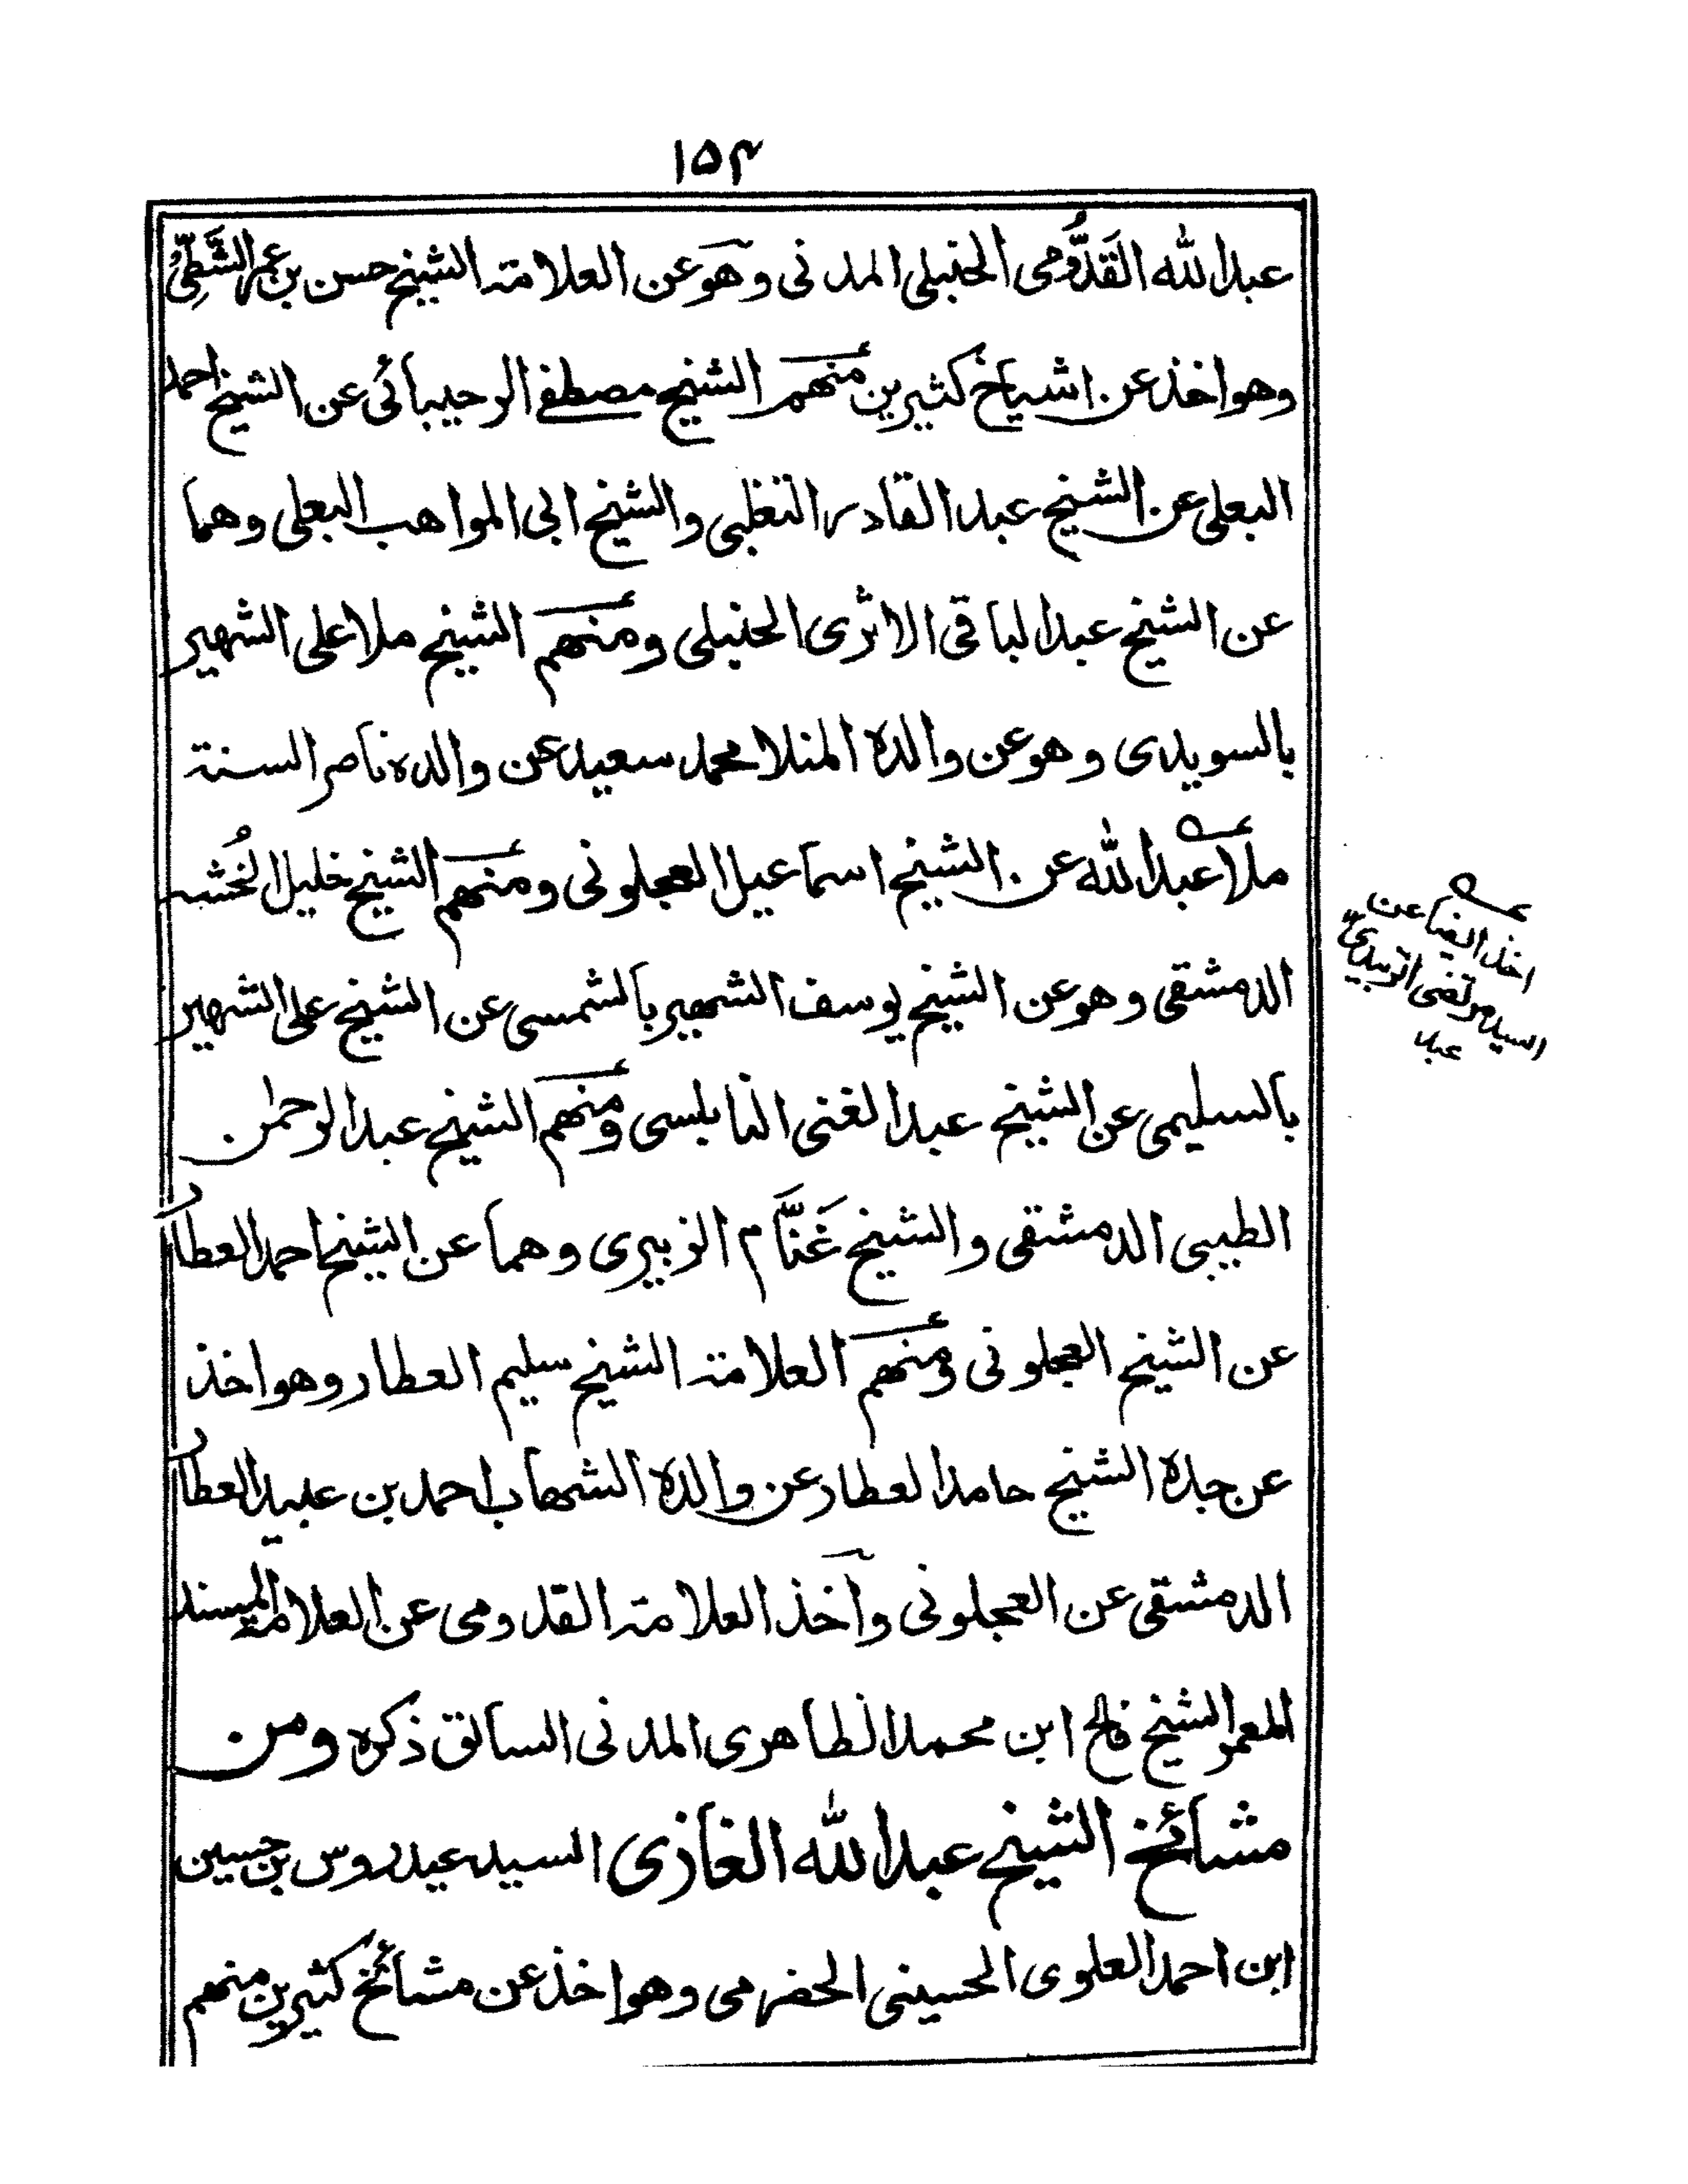 ۱۵۴
عبدالله القَدُّومى الحنبلى المدنى وهو عن العلامة الشيخ حسن بن عمر الشَّطِّىْ
وهو اخذ عن اشياخ كثيرين منهم الشيخ مصطفے الرحيبائى عن الشيخ احمد
البعلى عن الشيخ عبد القادر التغلبى والشيخ ابى المواهب البعلى وهما
عن الشيخ عبدالباقى الاثرى الحنبلى ومنهم الشيخ ملا على الشهير
بالسويدى وهو عن والده المنلا محمد سعيد عن والده ناصر السنة
ملا عبدالله عن الشيخ اسماعيل العجلونى ومنهم الشيخ خليل الخُشه
الدمشقى وهو عن الشيخ يوسف الشهير بالشمسى عن الشيخ على الشهير
بالسليمى عن الشيخ عبد الغنى النابلسى ومنهم الشيخ عبد الرحمٰن
الطيبى الدمشقى والشيخ غَنَّام الزبيرى وهما عن الشيخ احمد العطار
عن الشيخ العجلونى ومنهم العلامة الشيخ سليم العطار وهو اخذ
عن جده الشيخ حامد العطار عن والده الشهاب احمد بن عبيد العطار
الدمشقى عن العجلونى وأخذ العلامة القدومى عن العلامة المسند
المعمر الشيخ فالح ابن محمد الظاهرى المدنى السابق ذكره ومن
مشائخ الشيخ عبدالله الغازى السيد عيدروس بن حسين
ابن احمد العلوى الحسينى الحضرمى وهو اخذ عن مشائخ كثيرين منهم
اخذ ايضا عن
السيد مرتضى الزبيدى
عبد